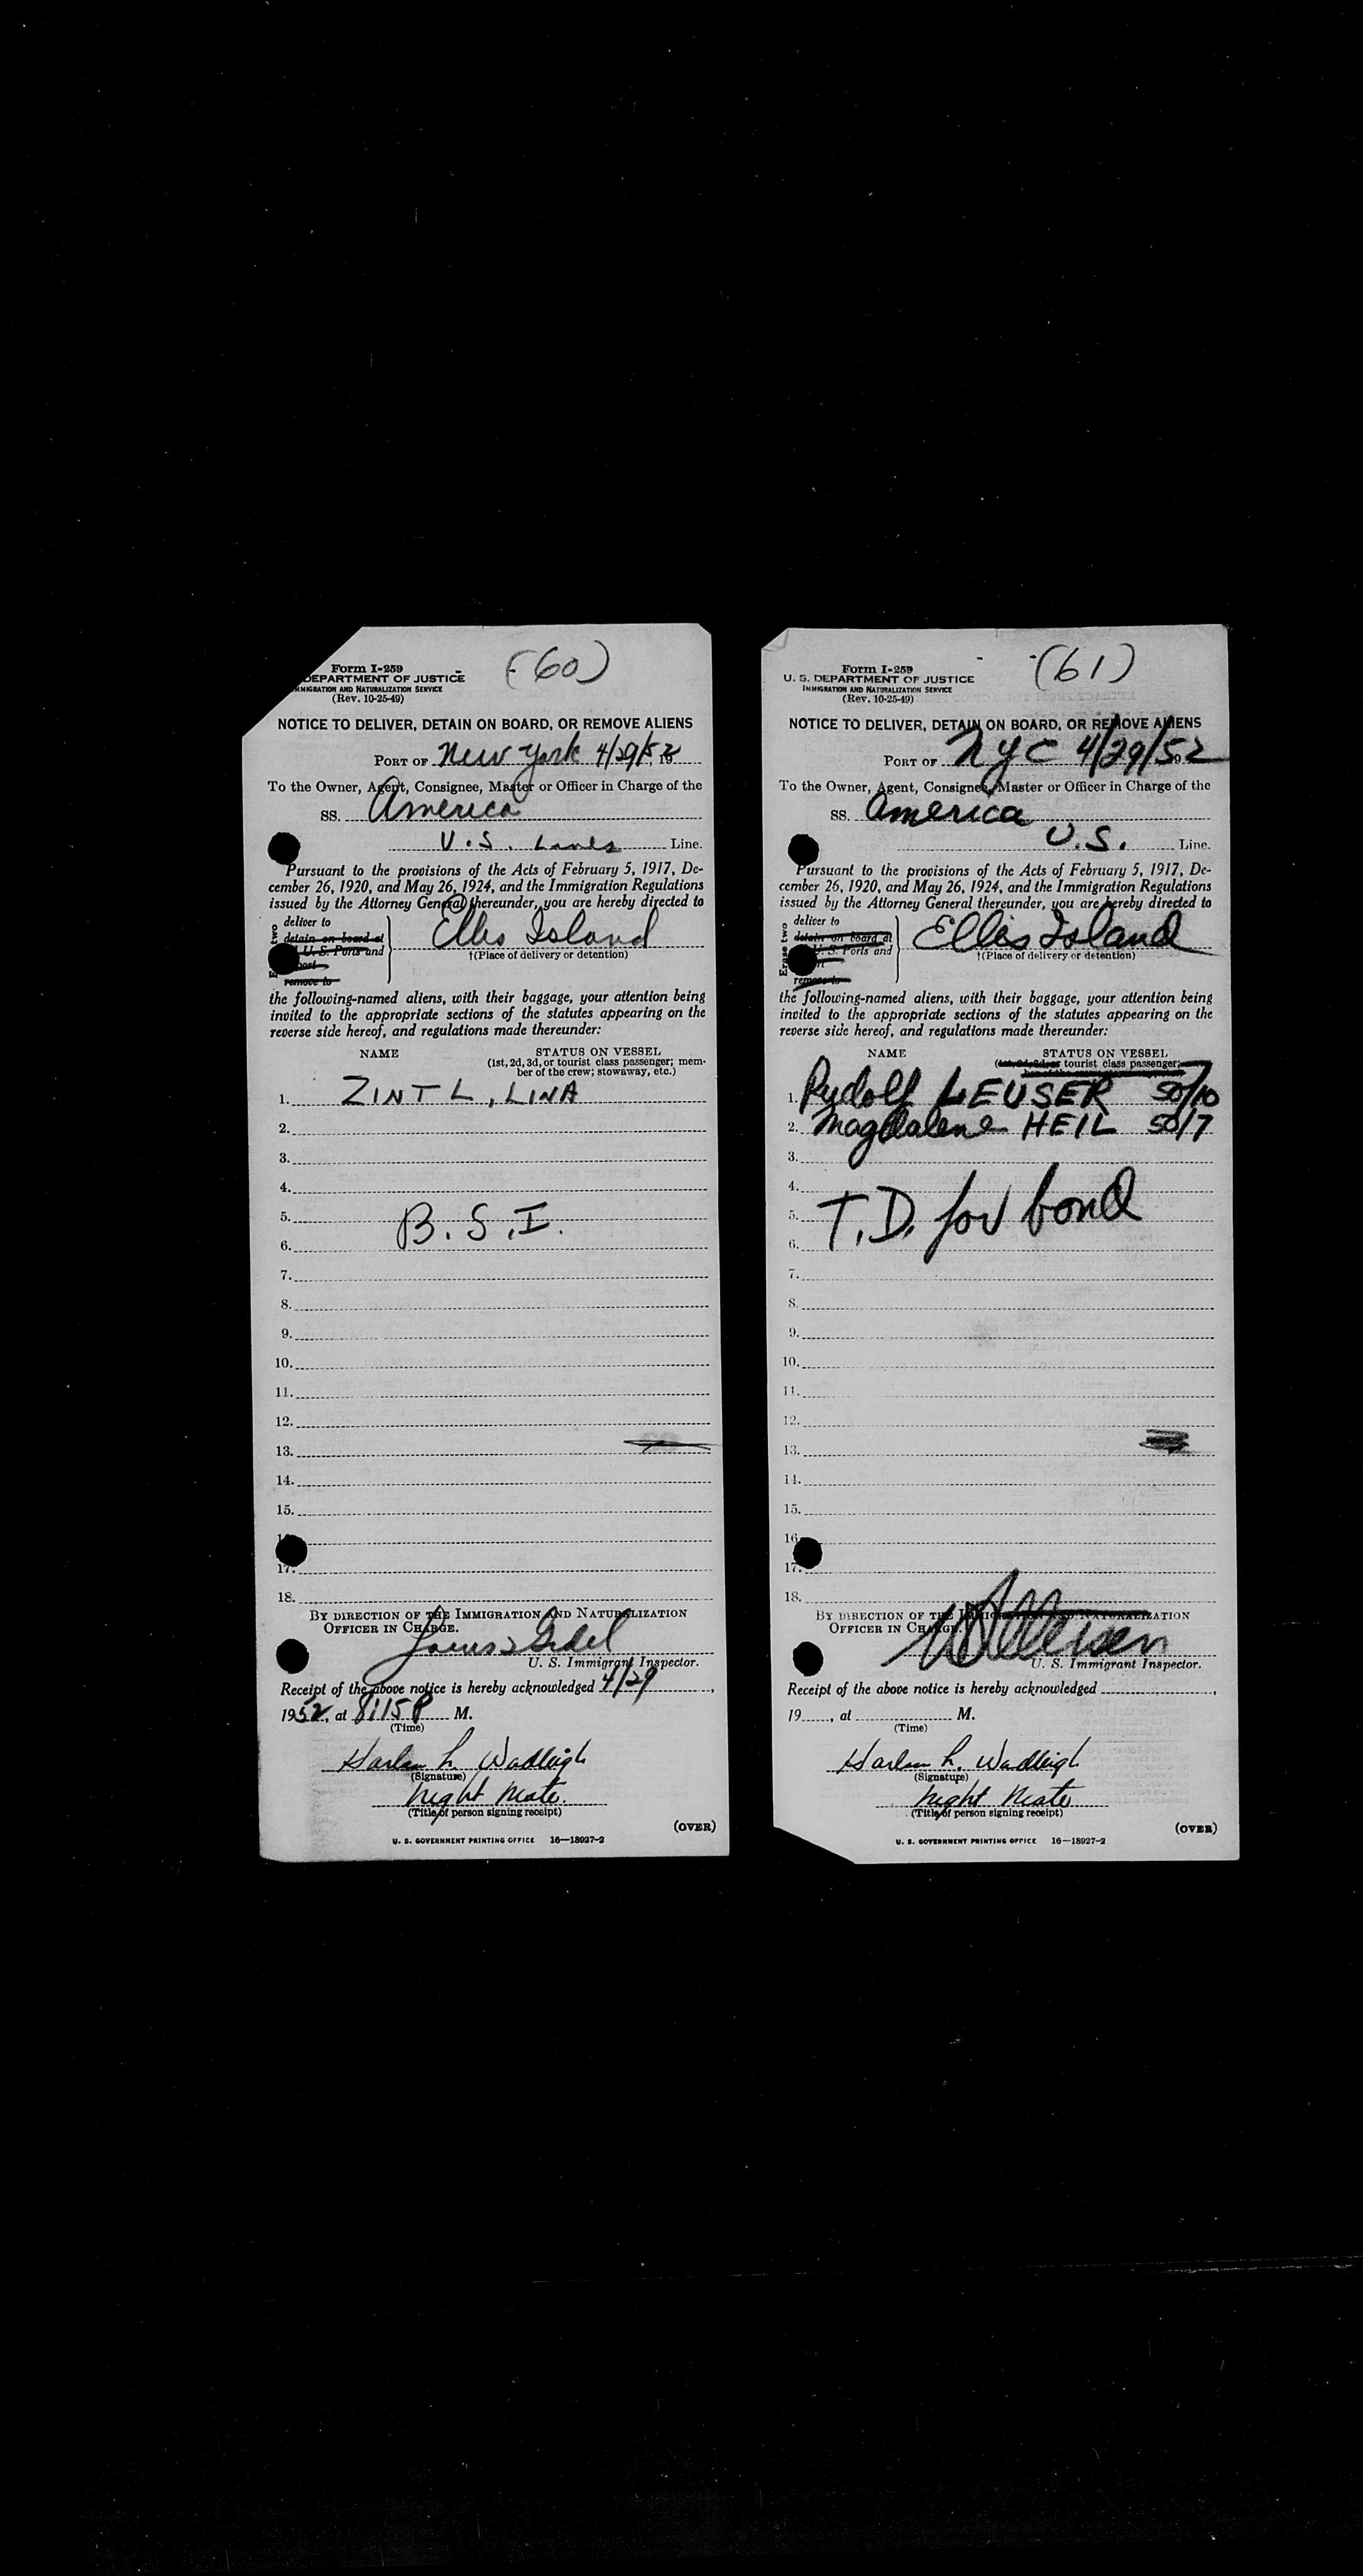 (60)
Form I-259
DEPARTMENT OF JUSTICE
IMMIGRATION AND NATURALIZATION SERVICE
(Rev. 10-25-49)
NOTICE TO DELIVER, DETAIN ON BOARD, OR REMOVE ALIENS
PORT OF New York 4/29/52, 19
To the Owner, Agent, Consignee, Master or Officer in Charge of the
SS. America
U.S. Lines Line.
Pursuant to the provisions of the Acts of February 5, 1917, De-
cember 26, 1920, and May 26, 1924, and the Immigration Regulations
issued by the Attorney General thereunder, you are hereby directed to
deliver to
detain on board at
U. S. Ports and
remove to
Ellis Island
†(Place of delivery or detention)
the following-named aliens, with their baggage, your attention being
invited to the appropriate sections of the statutes appearing on the
reverse side hereof, and regulations made thereunder:
NAME STATUS ON VESSEL
(1st, 2d, 3d, or tourist class passenger; mem-
ber of the crew; stowaway, etc.)
1. ZINTL, LINA
2.
3.
4.
5. B.S.I.
6.
7.
8.
9.
10.
11.
12.
13.
14.
15.
17.
18.
BY DIRECTION OF THE IMMIGRATION AND NATURALIZATION
OFFICER IN CHARGE.
U. S. Immigrant Inspector.
Receipt of the above notice is hereby acknowledged 4/29,
1952, at 8:15 P M.
(Time)
Harlan h. Wadleigh
(Signature)
Night Mate.
(Title of person signing receipt)
(OVER)
U. S. GOVERNMENT PRINTING OFFICE 16—18927-2
(61)
Form I-259
U. S. DEPARTMENT OF JUSTICE
IMMIGRATION AND NATURALIZATION SERVICE
(Rev. 10-25-49)
NOTICE TO DELIVER, DETAIN ON BOARD, OR REMOVE ALIENS
PORT OF NYC 4/29/52
To the Owner, Agent, Consignee, Master or Officer in Charge of the
SS. America
U.S. Line.
Pursuant to the provisions of the Acts of February 5, 1917, De-
cember 26, 1920, and May 26, 1924, and the Immigration Regulations
issued by the Attorney General thereunder, you are hereby directed to
Erase two
deliver to
detain on board at
U. S. Ports and
remove to
Ellis Island
†(Place of delivery or detention)
the following-named aliens, with their baggage, your attention being
invited to the appropriate sections of the statutes appearing on the
reverse side hereof, and regulations made thereunder:
NAME STATUS ON VESSEL
tourist class passenger;
1. Rudolf LEUSER 50/10
2. Magdalene HEIL 50/7
3.
4.
5. T.D. for bond
6.
7.
8.
9.
10.
11.
12.
13.
14.
15.
16.
17.
18.
BY DIRECTION OF THE IMMIGRATION AND NATURALIZATION
OFFICER IN CHARGE.
U. S. Immigrant Inspector.
Receipt of the above notice is hereby acknowledged
19 , at M.
(Time)
Harlan h. Wadleigh
(Signature)
Night Mate
(Title of person signing receipt)
(OVER)
U. S. GOVERNMENT PRINTING OFFICE 16—18927-2